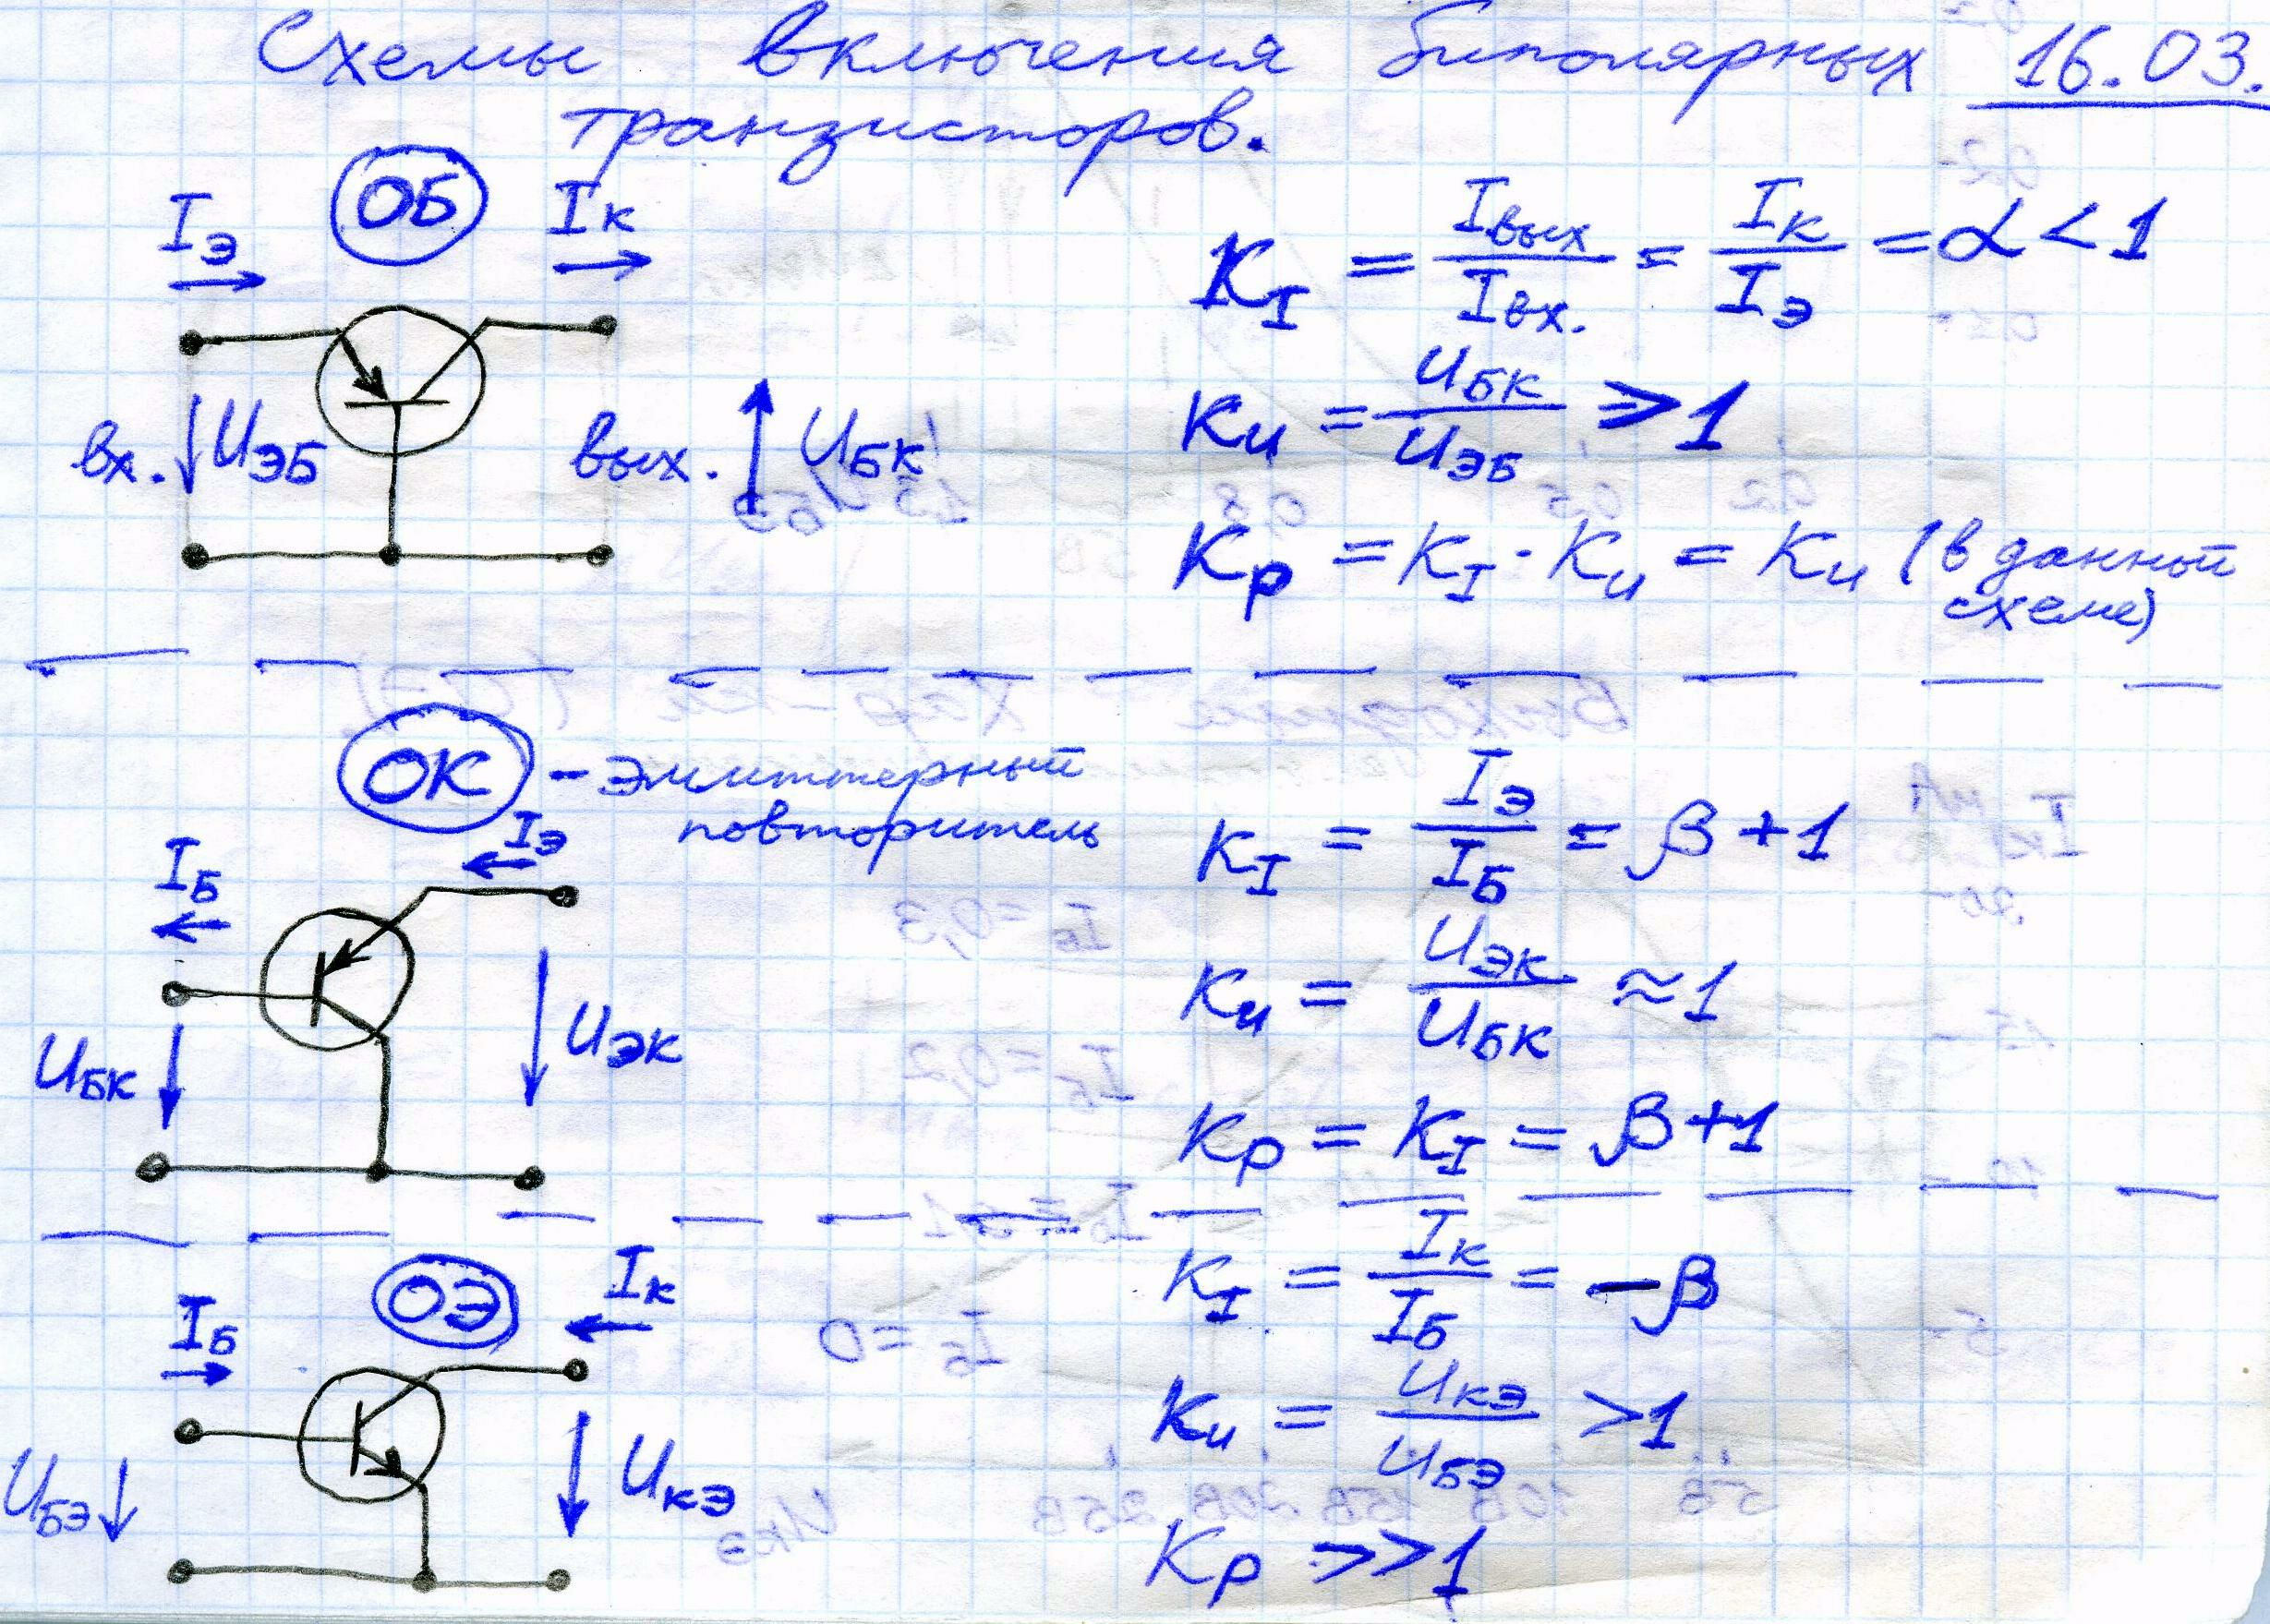 Схемы включения биполярных 16.03.
транзисторов.
ОБ
Iэ Iк
вх. Uэб вых. Uбк
K_I = Iвых / Iвх. = Iк / Iэ = α < 1
Kи = Uбк / Uэб ≫ 1
Kр = K_I · Kи = Kи (в данной
схеме)
ОК - эмиттерный
повторитель
Iэ
Iб
Uбк Uэк
K_I = Iэ / Iб = β + 1
Kи = Uэк / Uбк ≈ 1
Kр = K_I = β + 1
ОЭ
Iк
Iб
Uбэ Uкэ
K_I = Iк / Iб = -β
Kи = Uкэ / Uбэ > 1
Kр >> 1